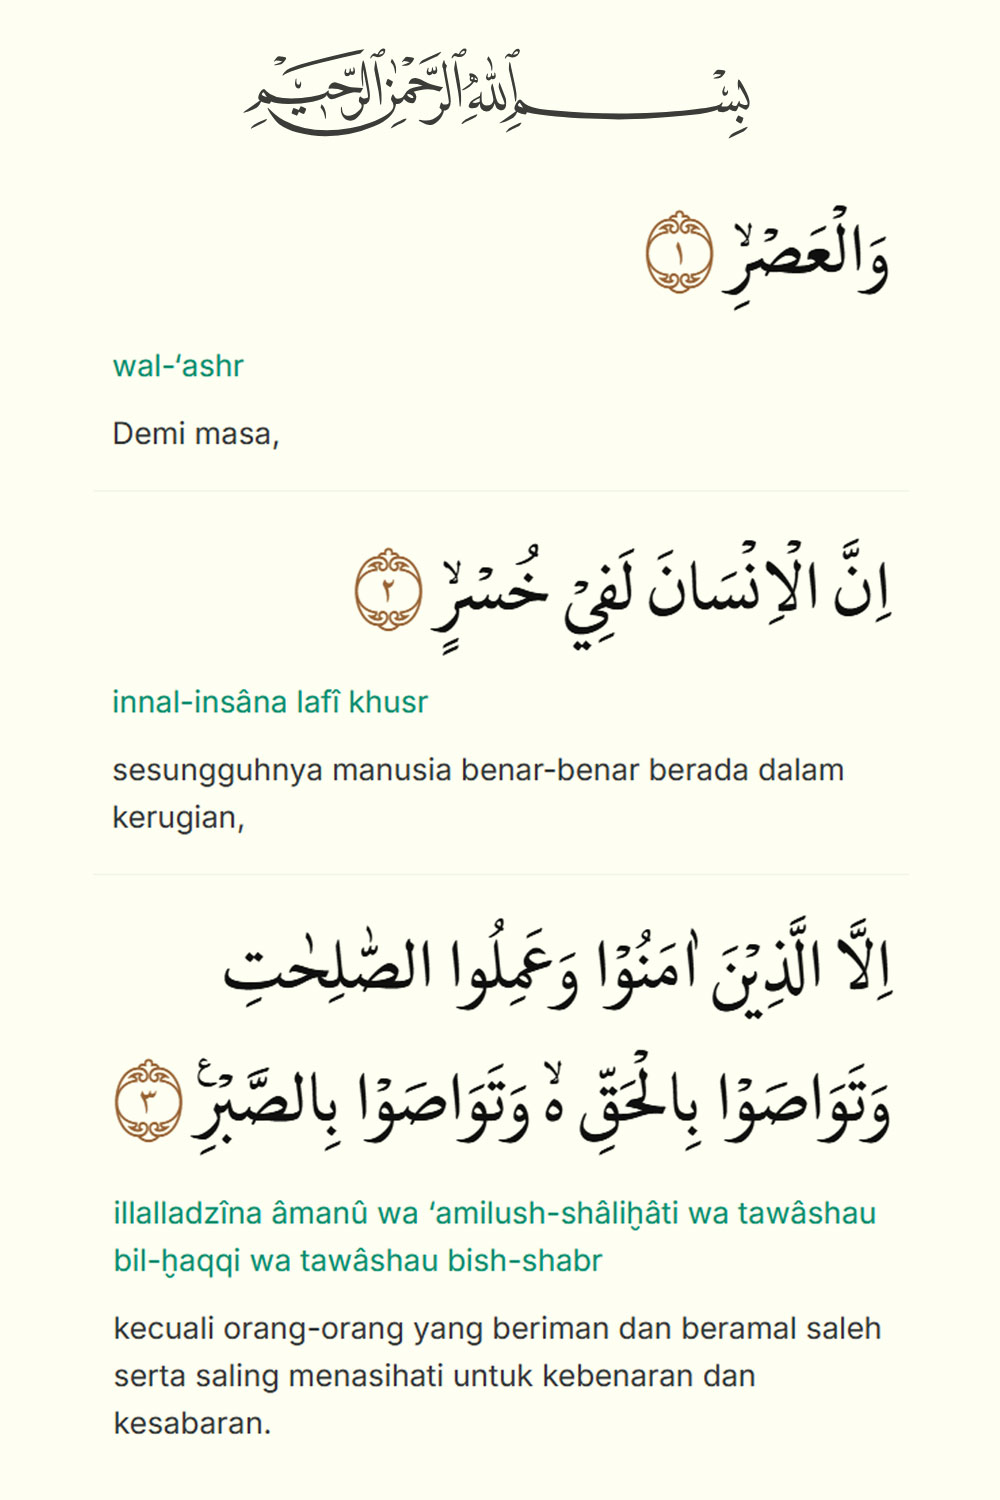 بِسْمِ اللّٰهِ الرَّحْمٰنِ الرَّحِيْمِ
وَالْعَصْرِۙ ١
wal-‘ashr
Demi masa,
اِنَّ الْاِنْسَانَ لَفِيْ خُسْرٍۙ ٢
innal-insâna lafî khusr
sesungguhnya manusia benar-benar berada dalam
kerugian,
اِلَّا الَّذِيْنَ اٰمَنُوْا وَعَمِلُوا الصّٰلِحٰتِ
وَتَوَاصَوْا بِالْحَقِّ ەۙ وَتَوَاصَوْا بِالصَّبْرِࣖ ٣
illalladzîna âmanû wa ‘amilush-shâliḫâti wa tawâshau
bil-ḫaqqi wa tawâshau bish-shabr
kecuali orang-orang yang beriman dan beramal saleh
serta saling menasihati untuk kebenaran dan
kesabaran.